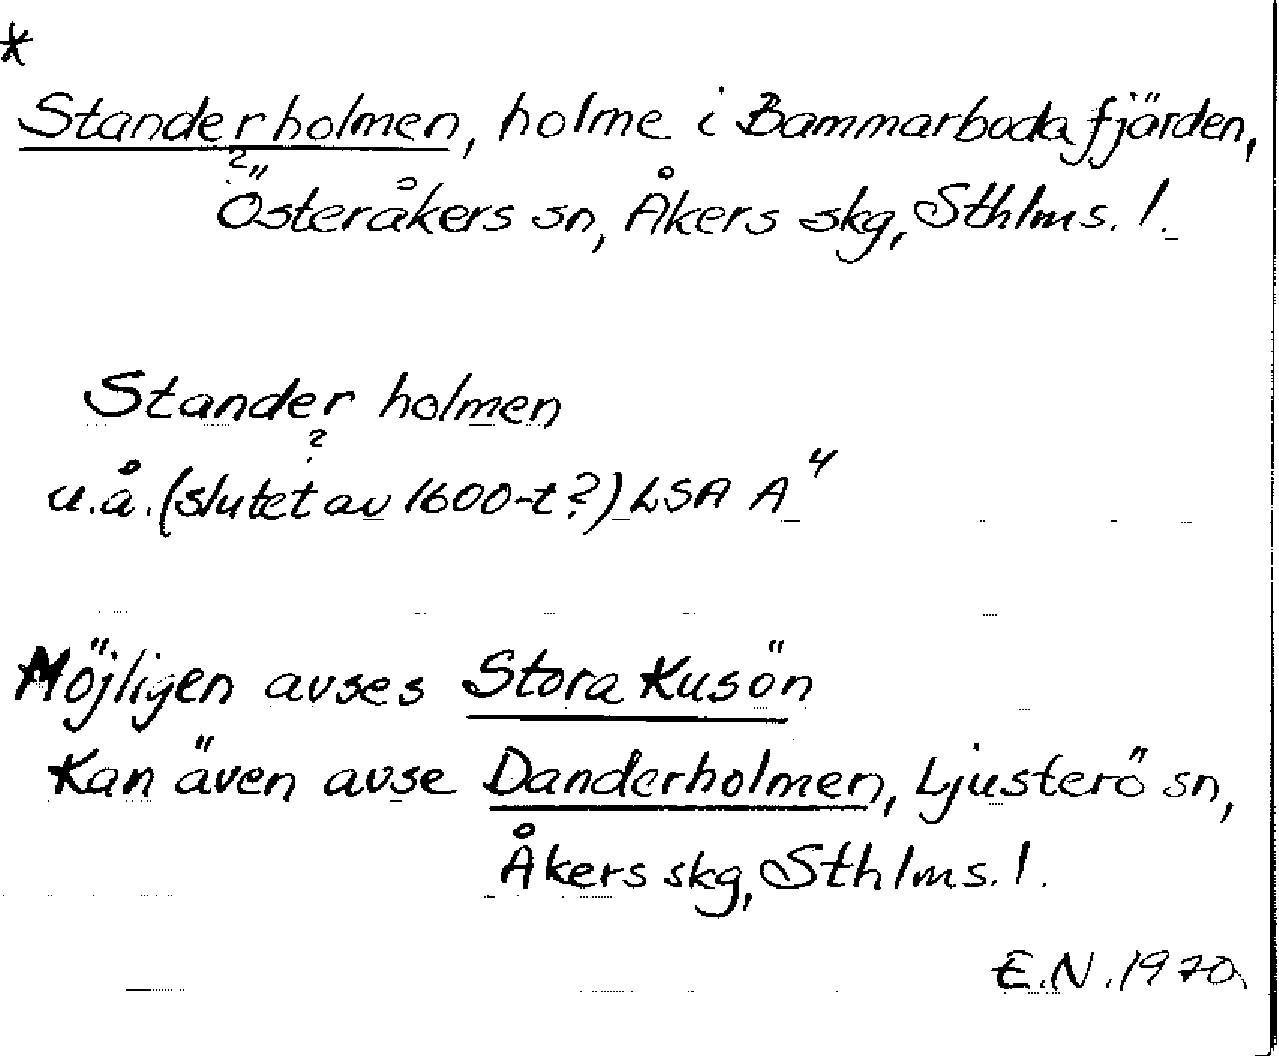 *
Standerholmen, holme i Bammarbodafjärden,
?
Österåkers sn, Åkers skg, Sthlms. l.
Stander holmen
?
u.å. (slutet av 1600-t?) LSA A⁴
Möjligen avses Stora Kusön
Kan även avse Danderholmen, Ljusterö sn,
Åkers skg, Sthlms. l.
E.N. 1970